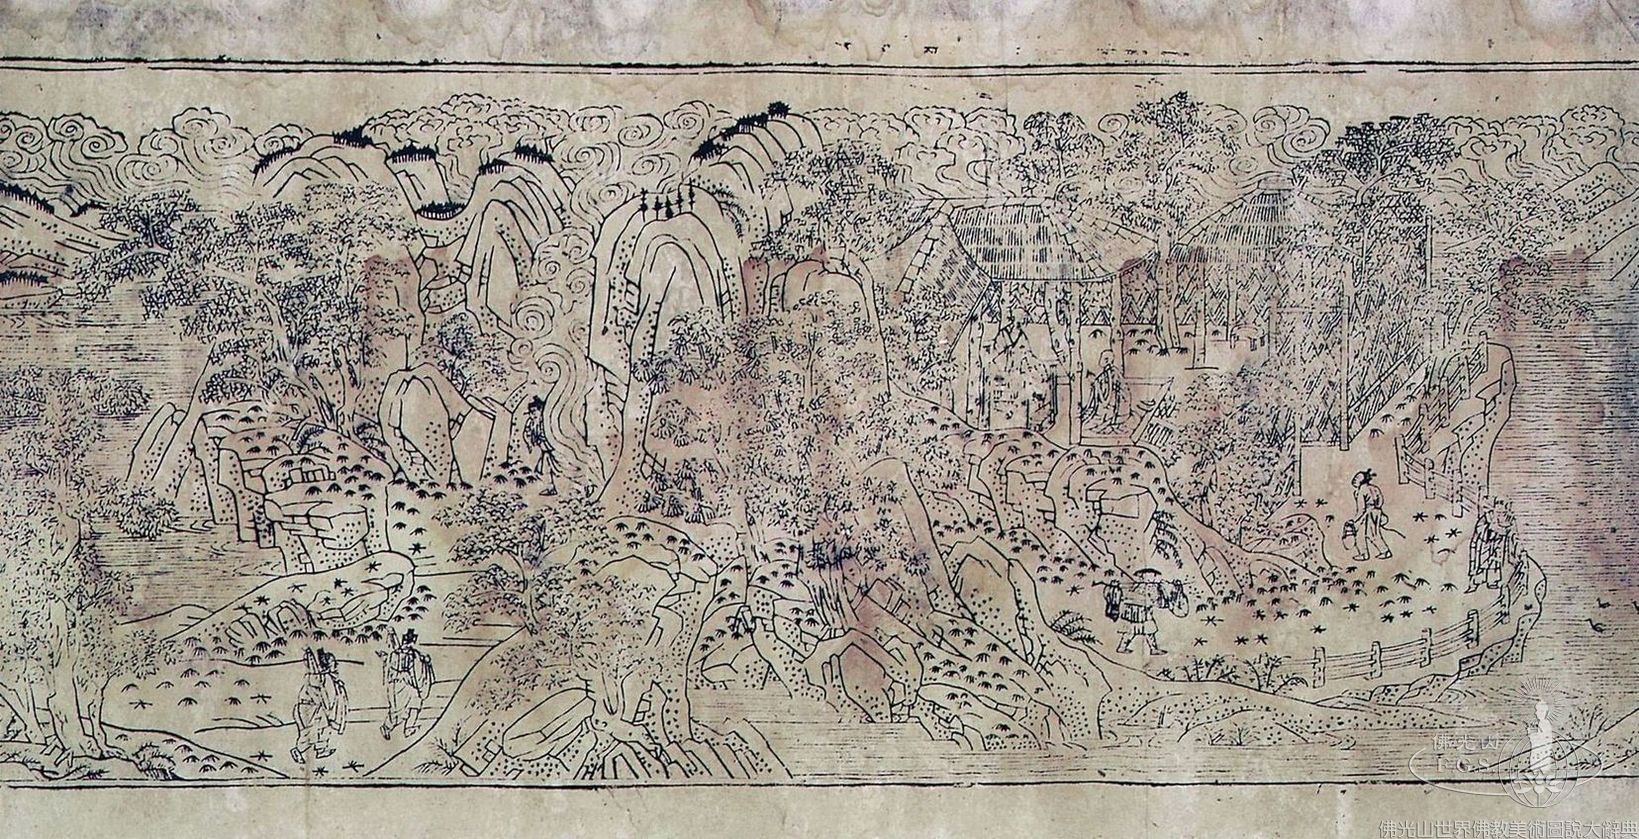 佛光山
F.G.S.
佛光山世界佛教美術圖說大辭典